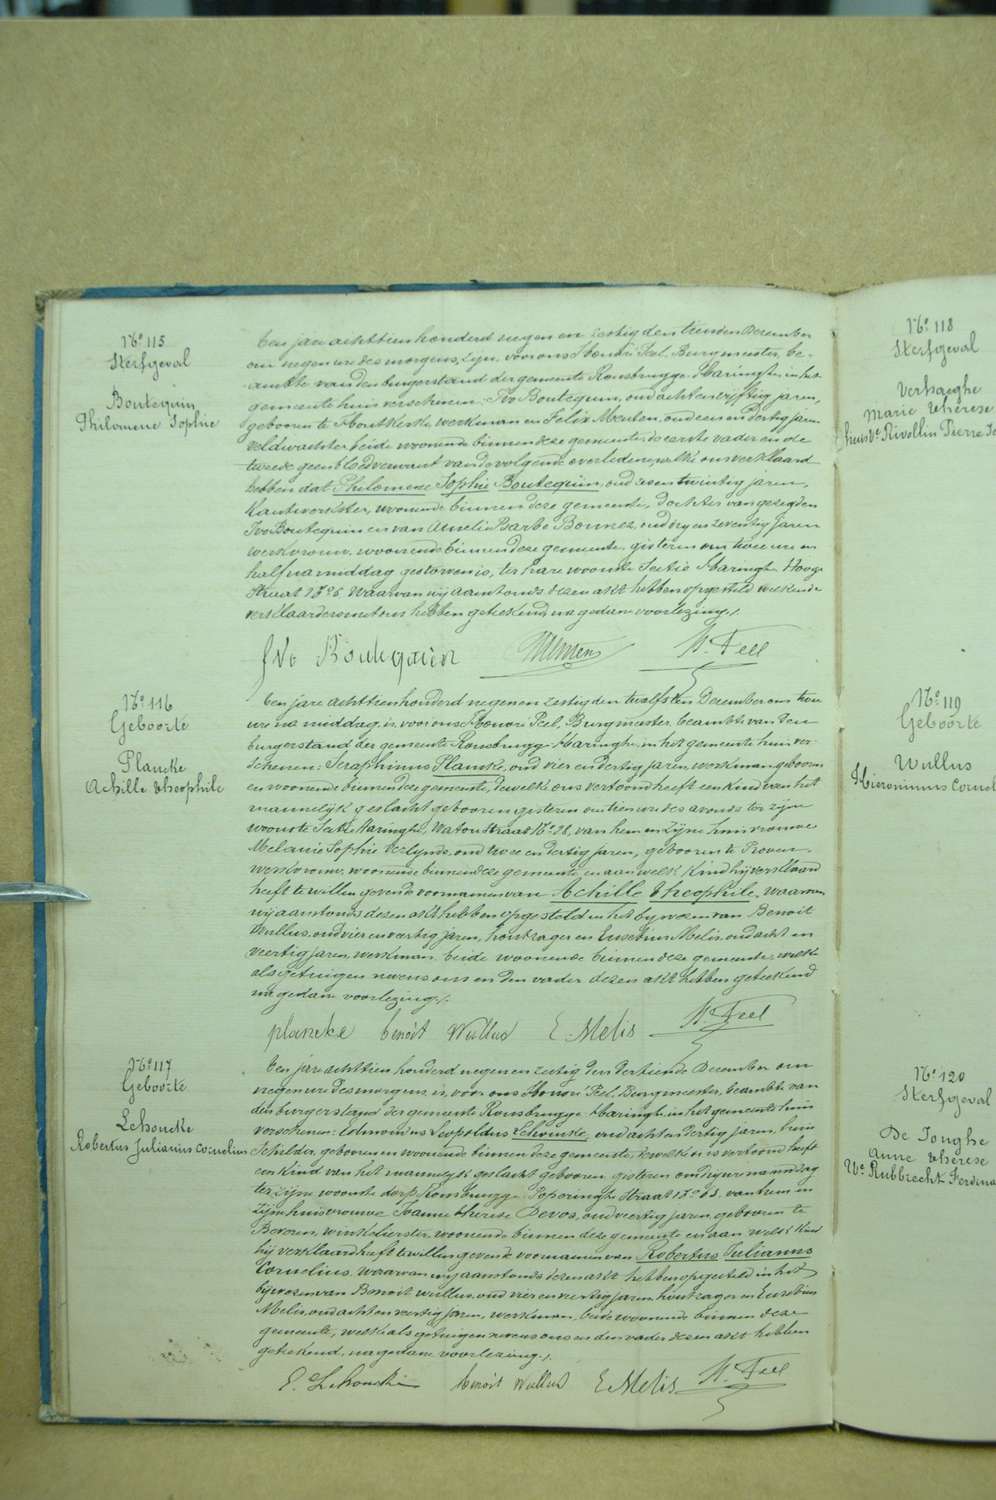 N° 115
Sterfgeval
Boutequin
Philomene Sophie
Een jare achttien honderd negen en zestig den tienden December
om negen ure des morgens, zijn voor ons Honoré Feel, Burgmeester, be-
ambte van den burgerstand der gemeente Rousbrugge-Haringhe, in het
gemeente huis verschenen: Ivo Boutequin, oud acht en vyftig jaren,
geboren te Houtkerke, werkman en Felix Meulen, oud een en dertig jaren
veldwachter beide woonende binnen deze gemeente de eerste vader en de
tweede geen bloedverwant van de volgende overledene, welke ons verklaard
hebben dat Philomene Sophie Boutequin, oud zes en twintig jaren,
kantwerkster, woonende binnen deze gemeente, dochter van gezegden
Ivo Boutequin en van Amelia Barbe Bonnez, oud dry en zeventig jaren
werkvrouw, woonende binnen deze gemeente, gisteren om twee ure en
half na middag gestorven is, ter hare woonste Sectie Haringhe Hooge
Straat N° 6. Waarvan wij aanstonds dezen akt hebben opgesteld welke de
verklaarders met ons hebben geteekend, na gedane voorlezing./.
Ivo Boutequin H. Feel
N° 116
Geboorte
Plancke
Achille Theophile
Een jare achttien honderd negen en zestig den twelfsten December om twee
ure na middag, is voor ons Honoré Feel, Burgmeester beambte van den
burgerstand der gemeente Rousbrugge-Haringhe, in het gemeente huis ver-
schenen: Seraphinus Plancke, oud vier en dertig jaren, werkman geboren
en woonende binnen deze gemeente, dewelke ons vertoond heeft een kind van het
mannelijk geslacht geboren gisteren om tien ure des avonds ter zijne
woonste Sectie Haringhe, Watou Straat N° 28, van hem en zijne huisvrouwe
Melanie Sophie Verlynde, oud twee en dertig jaren, geboren te Proven
werkvrouw, woonende binnen deze gemeente, en aan welk kind hij verklaard
heeft te willen geven de voornamen van Achille Theophile, waarvan
wij aanstonds dezen akt hebben opgesteld in het bywezen van Benoit
Wullus, oud vier en veertig jaren, houtzager en Eusebius Melis, oud acht en
veertig jaren, werkman, beide woonende binnen deze gemeente, welke
als getuigen nevens ons en den vader dezen akt hebben geteekend
na gedane voorlezing./.
plancke benoit Wullus E Melis H. Feel
N° 117
Geboorte
Lehoucke
Robertus Julianus Cornelius
Een jare achttien honderd negen en zestig den dertiende December om
negen ure des morgens, is voor ons Honoré Feel, Burgmeester, beambte van
den burgerstand der gemeente Rousbrugge-Haringhe, in het gemeente huis
verschenen: Edmondus Leopoldus Lehoucke, oud acht en dertig jaren, huis
schilder, geboren en woonende binnen deze gemeente, dewelke ons vertoond heeft
een kind van het mannelijk geslacht geboren gisteren om dry ure na middag
ter zijne woonste dorp Rousbrugge Poperinghe Straat N° 63. van hem en
zijne huisvrouwe Joanne Therese Devos, oud veertig jaren, geboren te
Beveren, winkelierster, woonende binnen deze gemeente en aan welk kind
hij verklaard heeft te willen geven de voornamen van Robertus Julianus
Cornelius. waarvan wij aanstonds dezen akt hebben opgesteld in het
bijwezen van Benoit Wullus, oud vier en veertig jaren, houtzager en Eusebius
Melis, oud acht en veertig jaren, werkman, beide woonende binnen deze
gemeente, welke als getuigen nevens ons en den vader dezen akt hebben
geteekend, na gedane voorlezing./.
E. Lehoucke benoit Wullus E Melis H. Feel
N° 118
Sterfgeval
Verhaeghe
Marie Therese
huisve Rivellin Pierre
N° 119
Geboorte
Wullus
Hieronimus
N° 120
Sterfgeval
De Jonghe
Anne Therese
We Rubbrecht Ferdina